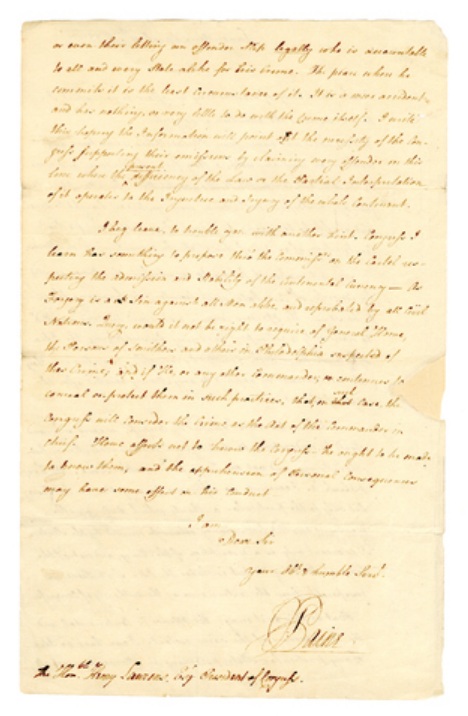 or even their letting an offender slip legally who is accountable
to all and every State alike for his Crime. The place where he
commits it is the least circumstance of it. It is a mere accident
and has nothing or very little to do with the Crime itself. I write
this hoping the Information will point out the necessity of the Con-
gress supporting their emissions by claiming every offender in this
line where the present deficiency of the Law or the Partial Interpretation
of it operates to the Injustice and Injury of the whole Continent.
I beg leave to trouble you with another hint. Congress I
learn has something to propose thro the Commissrs on the Cartel res-
pecting the admission and Stability of the Continental Currency — As
Forgery is a Sin against all Men alike, and reprobated by all Civil
Nations. Query, would it not be right to require of General Howe,
the Persons of Smithers and others in Philadelphia suspected of
this Crime; and if He or any other Commander, continues to
conceal or protect them in such practices, that, in such Case, the
Congress will consider the Crime as the Act of the Commander in
chief. Howe affects not to know the Congress - he ought to be made
to know them, and the apprehension of Personal Consequences
may have some effect on his Conduct
I am
Dear Sir
Your Obt & humble Servt.
Paine
The Honble Henry Laurens, Esq President of Congress.